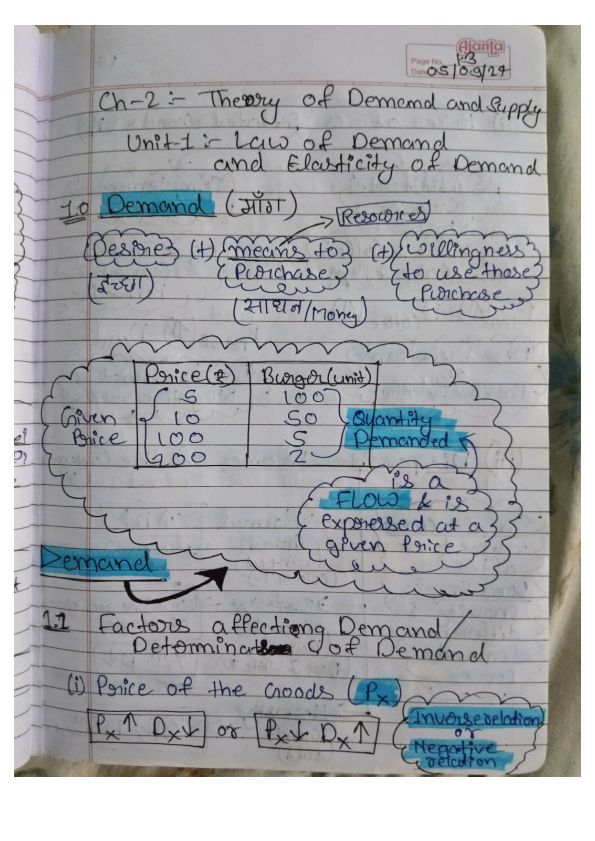 Ajanta
Page No. 1.3
Date 05/09/24
Ch-2 :- Theory of Demand and Supply
Unit-1 :- Law of Demand
and Elasticity of Demand
1.0 Demand (माँग)
Resources
Desire (+) means to (+) Willingness
(इच्छा) Purchase to use those
Purchase
(साधन/Money)
Price(₹) Burger(unit)
5 100
Given 10 50 Quantity
Price 100 5 Demanded
200 2
is a
FLOW & is
expressed at a
given Price
Demand
1.1 Factors affecting Demand/
Determinats of Demand
(i) Price of the Goods (Px)
Px↑ Dx↓ or Px↓ Dx↑
Inverse relation
or
Negative
relation